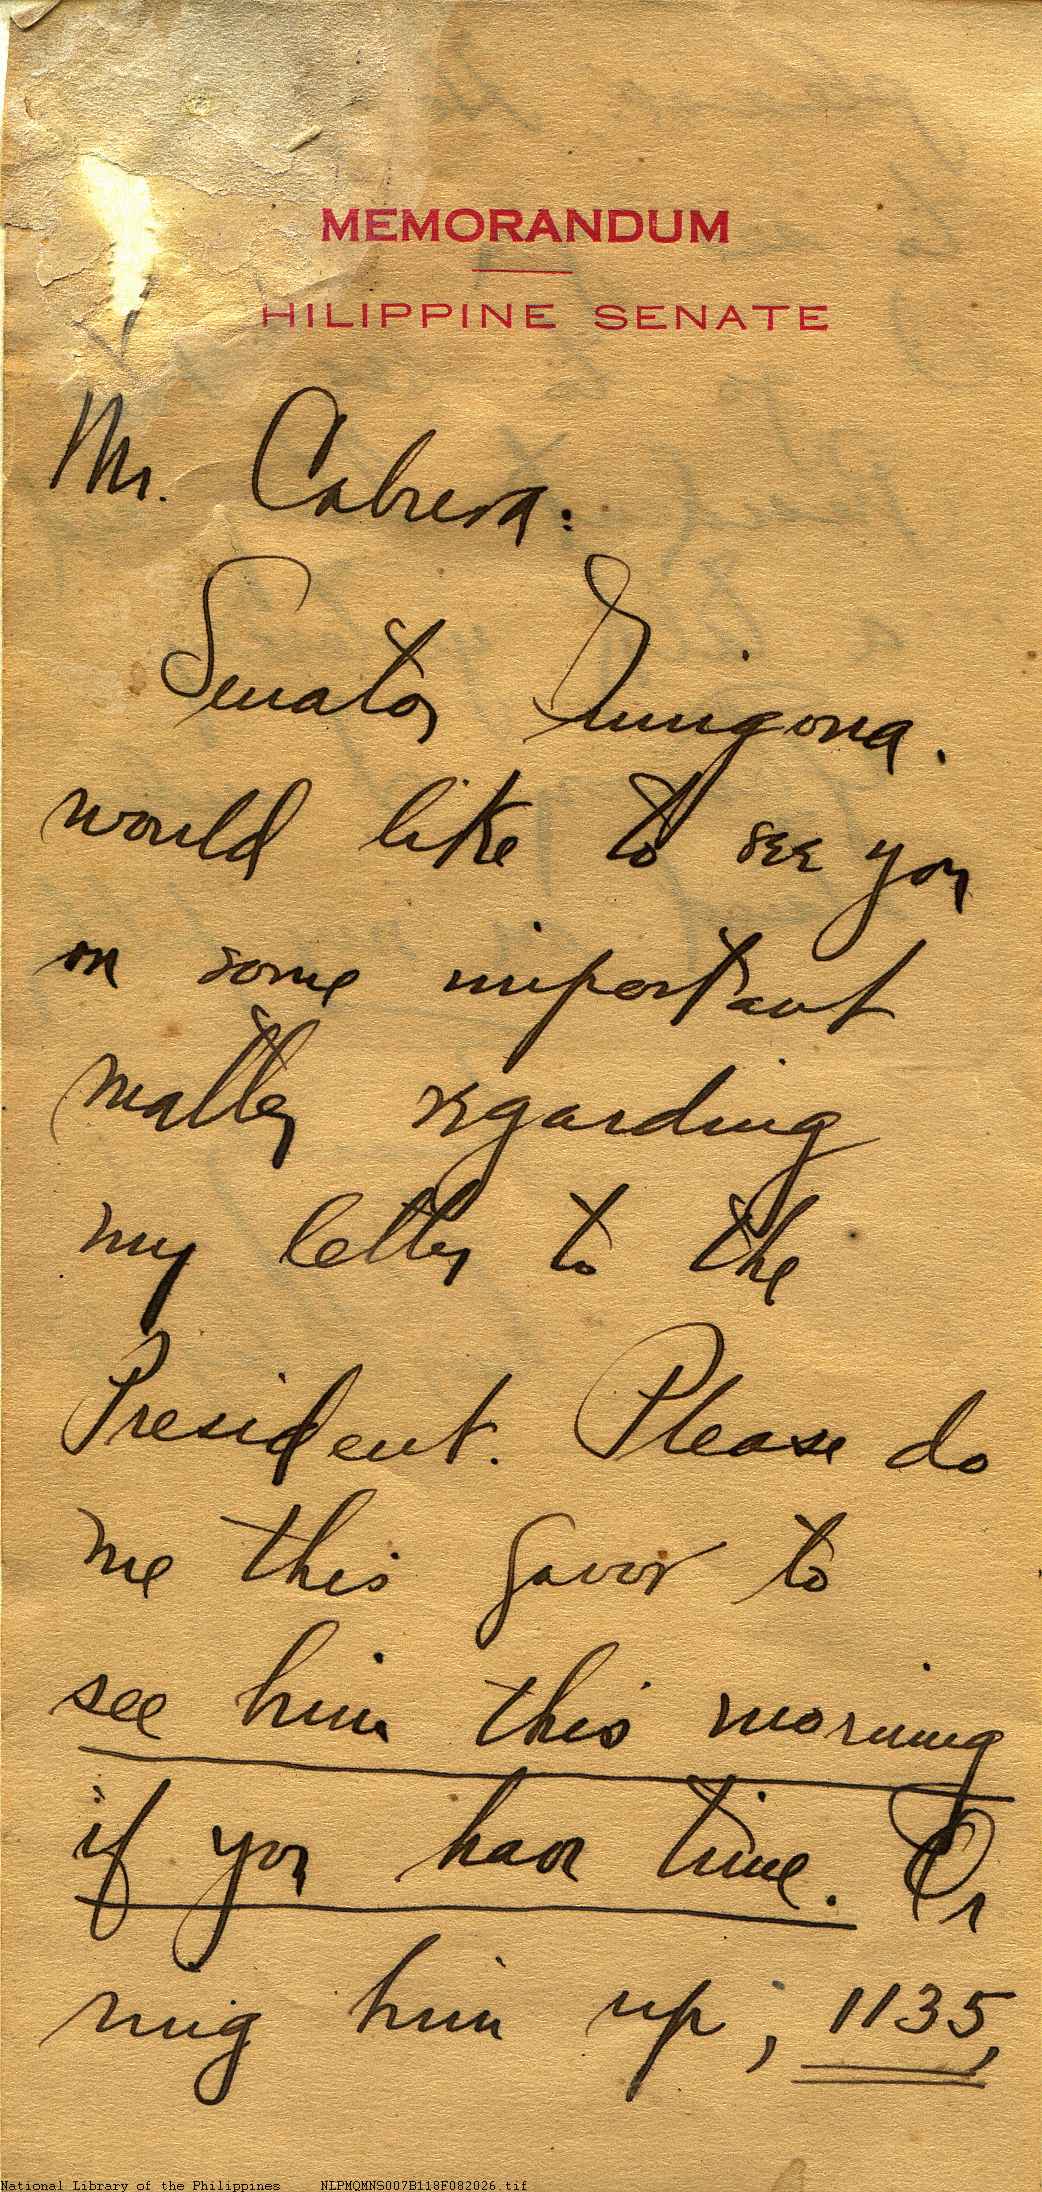 MEMORANDUM
HILIPPINE SENATE
Mr. Cabrera:
Senator Guingona.
would like to see you
on some important
matter regarding
my letter to the
President. Please do
me this favor to
see him this morning
if you have time. Or
ring him up; 1135,
National Library of the Philippines NLPMQMNS007B118F082026.tif